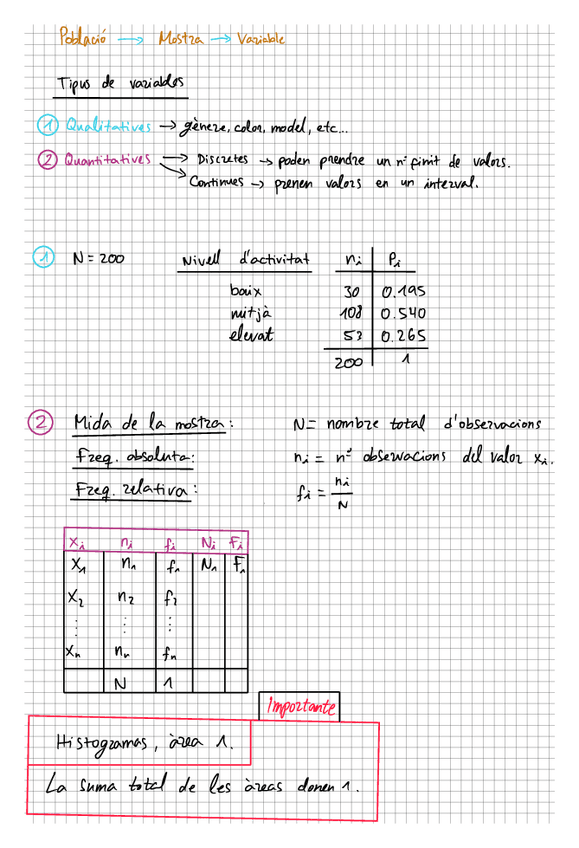 Població → Mostra → Variable
Tipus de variables
① Qualitatives → gènere, color, model, etc...
② Quantitatives → Discretes → poden prendre un nº finit de valors.
→ Continues → prenen valors en un interval.
① N = 200 Nivell d'activitat nᵢ Pᵢ
baix 30 0.195
mitjà 108 0.540
elevat 53 0.265
200 1
② Mida de la mostra: N = nombre total d'observacions
Freq. absoluta: nᵢ = nº observacions del valor xᵢ.
Freq. relativa: fᵢ = nᵢ/N
Xᵢ nᵢ fᵢ Nᵢ Fᵢ
X₁ n₁ f₁ N₁ F₁
X₂ n₂ f₂
⋮ ⋮ ⋮
Xₙ nₙ fₙ
N 1
Importante
Histogramas, àrea 1.
La suma total de les àreas donen 1.